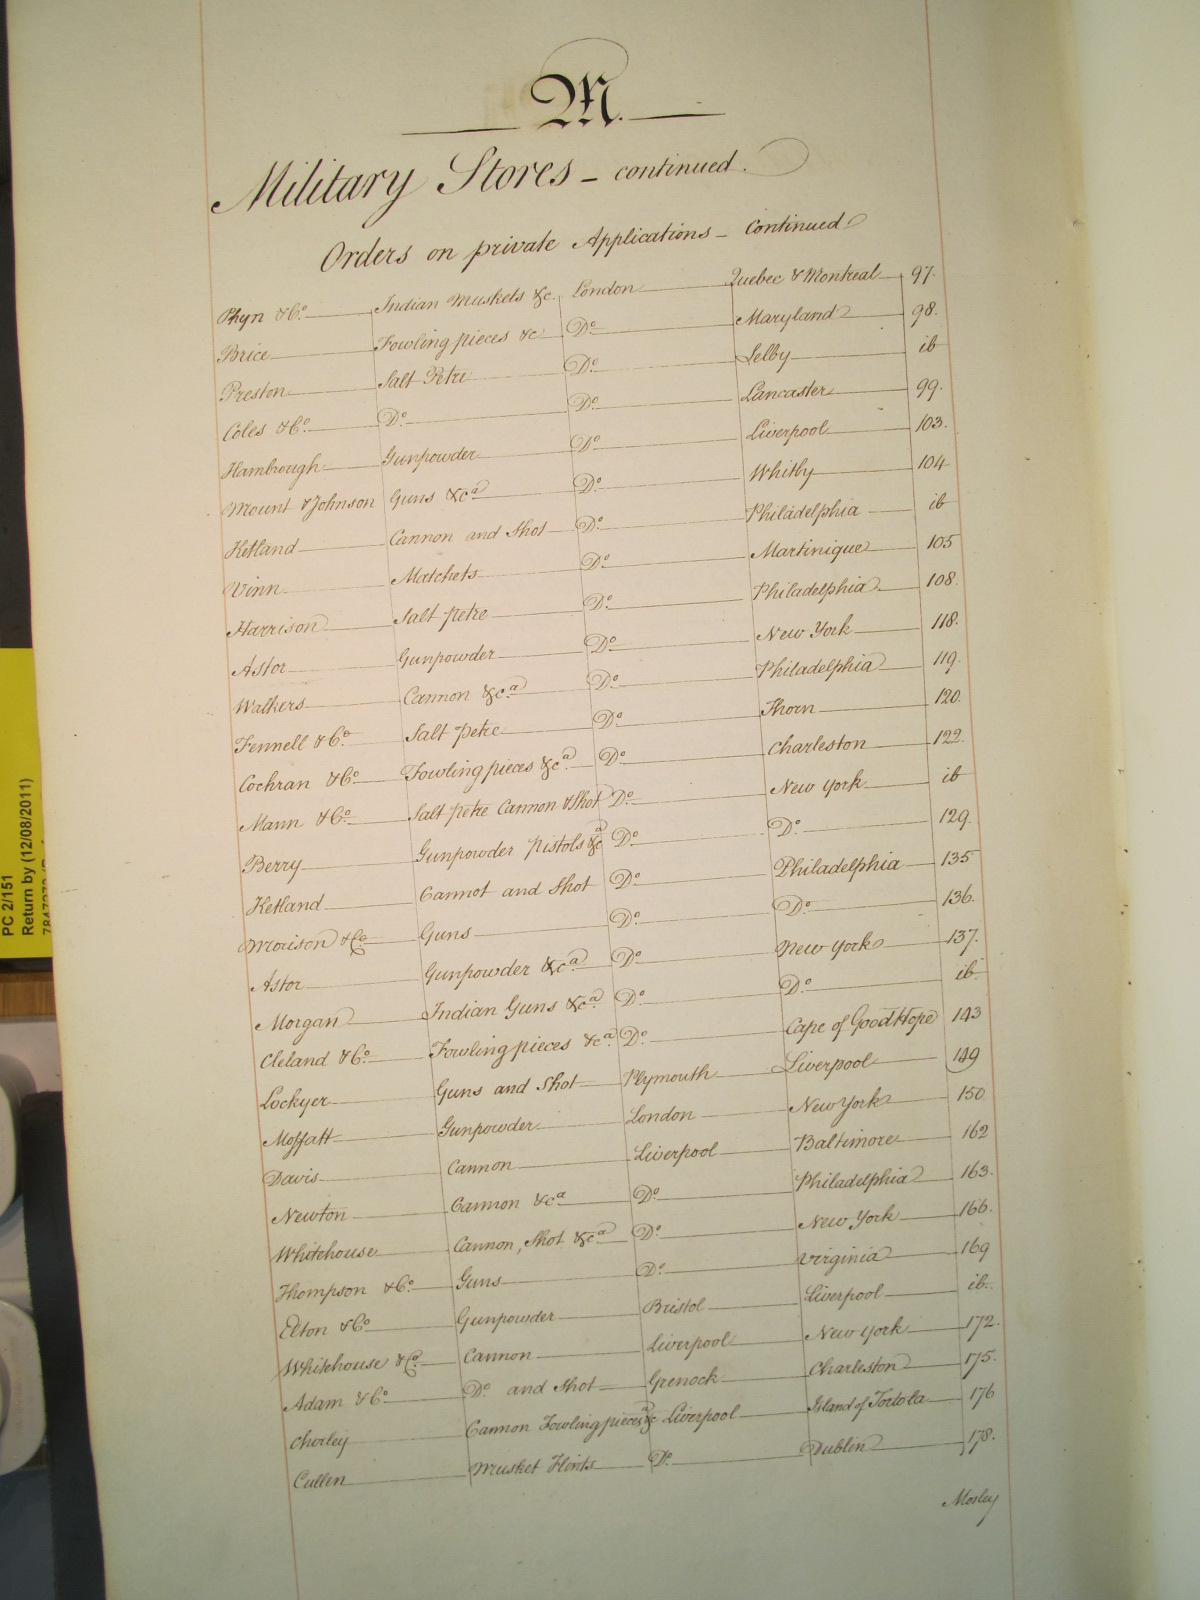 M.
Military Stores - continued.
Orders on private Applications - Continued
Phyn & Co. Indian Muskets &c. London Quebec & Montreal 97.
Brice Fowling pieces &c Do. Maryland 98.
Preston Salt Petre Do. Selby ib
Coles & Co. Do. Do. Lancaster 99.
Hambrough Gunpowder Do Liverpool 103.
Mount & Johnson Guns &ca Do. Whitby 104
Ketland Cannon and Shot Do. Philadelphia ib
Vinn Matchets Do. Martinique 105
Harrison Salt petre Do. Philadelphia 108.
Astor Gunpowder Do. New York 118.
Walkers Cannon &c.a Do. Philadelphia 119.
Fennell & Co. Salt petre Do. Thorn 120.
Cochran & Co. Fowling pieces &ca Do. Charleston 122.
Mann & Co. Salt petre Cannon & Shot Do. New York ib
Berry Gunpowder Pistols &ca Do. Do. 129.
Ketland Cannot and Shot Do. Philadelphia 135
Morison & Co. Guns Do. Do. 136.
Astor Gunpowder &ca Do. New York 137.
Morgan Indian Guns &ca Do. Do. ib
Cleland & Co. Fowling pieces &ca Do. Cape of Good Hope 143
Lockyer Guns and Shot Plymouth Liverpool 149
Moffatt Gunpowder London New York 150
Davis Cannon Liverpool Baltimore 162
Newton Cannon &ca Do. Philadelphia 163.
Whitehouse Cannon, Shot &ca Do. New York 166.
Thompson & Co. Guns Do. Virginia 169
Elton & Co. Gunpowder Bristol Liverpool ib.
Whitehouse & Co. Cannon Liverpool New York 172.
Adam & Co. Do. and Shot Grenock Charleston 175.
Chorley Cannon Fowling pieces &ca Liverpool Island of Tortola 176
Cullen Musket Flints Do. Dublin 178.
Mosley
PC 2/151
Return by (12/08/2011)